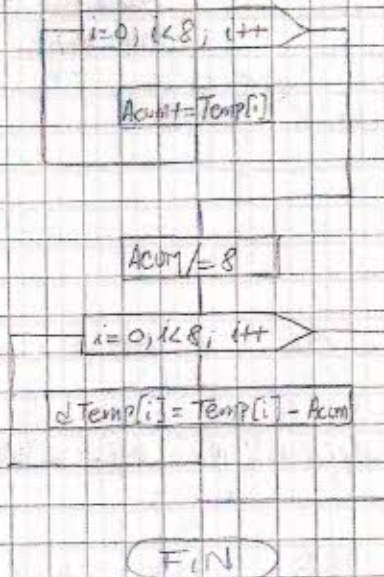 i=0, i<8; i++
Acum+=Temp[i]
Acum/=8
i=0, i<8; i++
dTemp[i] = Temp[i] - Acum
FIN